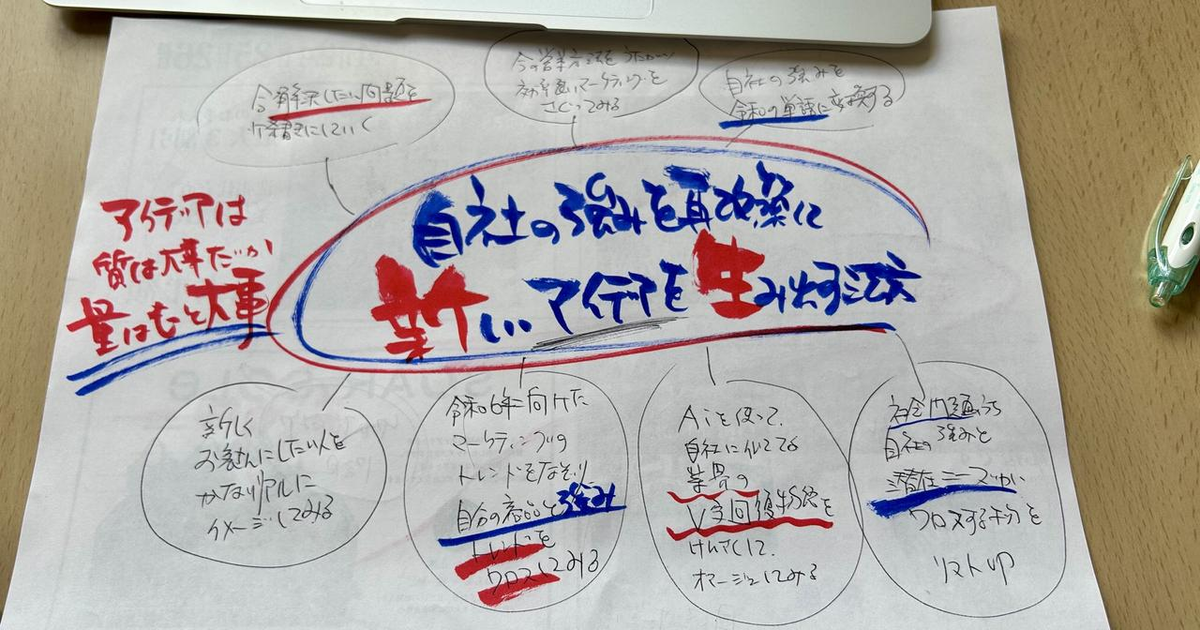 今解決したい問題を
今の営業方法を
効率悪いマーケティングを
さぐってみる
自社の強みを
令和の単語に変換する
自社の強みを再改築に
新しいアイデアを生み出す注文
アイデアは
質は大事だが
量はもっと大事
新しく
お客さんにしたい人を
かなりリアルに
イメージしてみる
令和6年向けた
マーケティングの
トレンドをなぞり
自分の商品と強み
トレンドを
クロスしてみる
Aiを使って、
自社に似てる
業界の
V字回復手段を
けんさくして、
オマージュしてみる
社会問題から
自社の強みと
潜在ニーズが
クロスする部分を
リストup